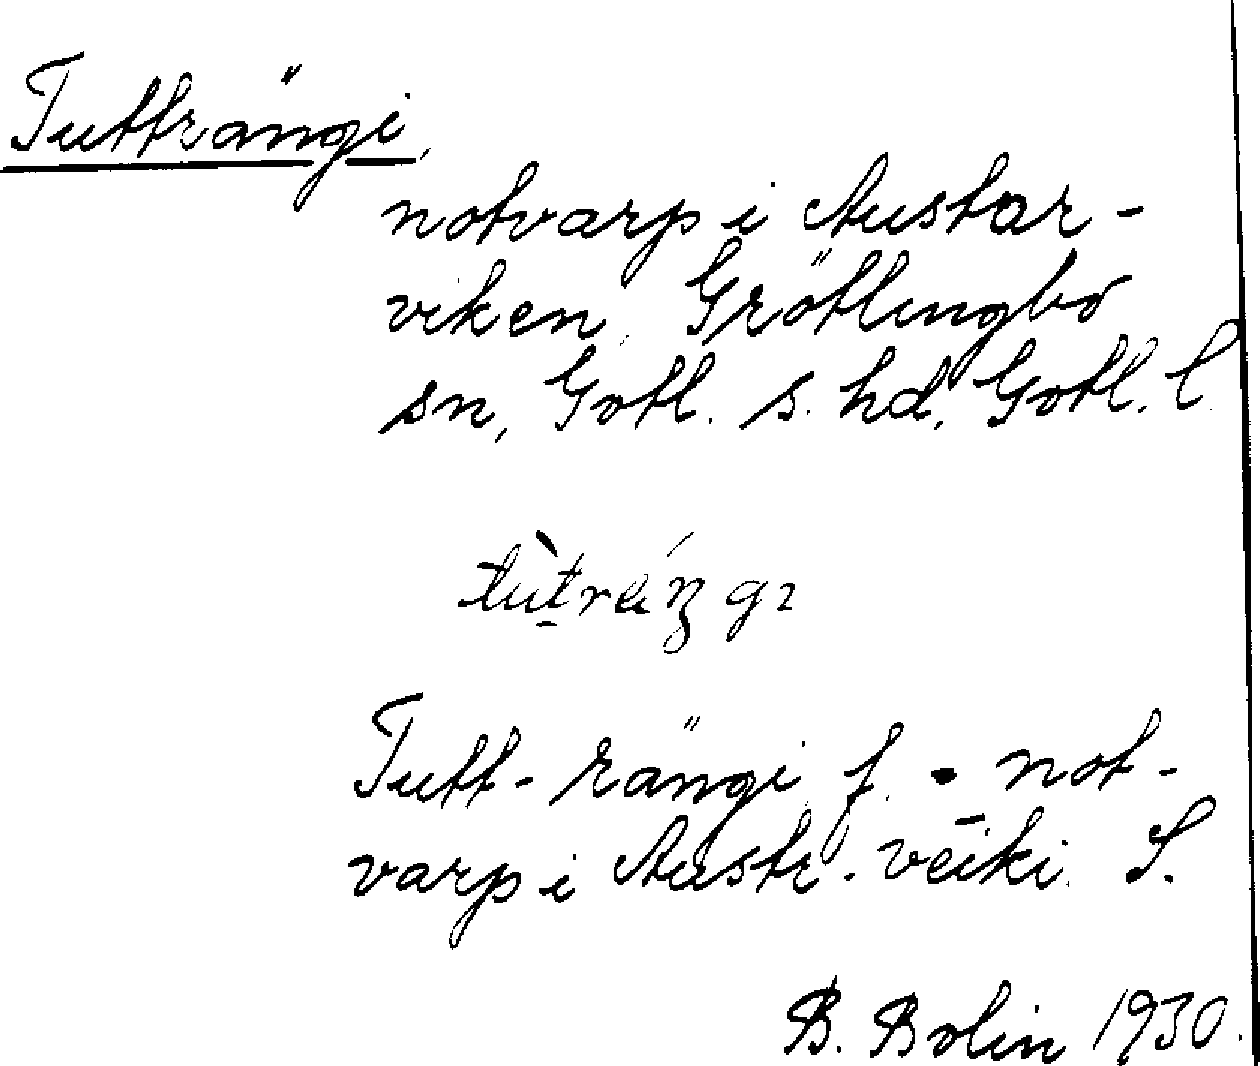 Tutträngi,
notvarp i Austar-
viken, Grötlingbo
sn, Gotl. s. hd, Gotl. l.
Tutt-rängi f. = not-
varp i Austr. vēiki. S.
B. Bolin 1930.